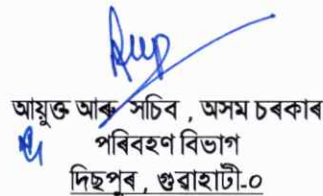 আয়ুক্ত আৰু সচিব , অসম চৰকাৰ
পৰিবহণ বিভাগ
দিছপুৰ , গুৱাহাটী-০